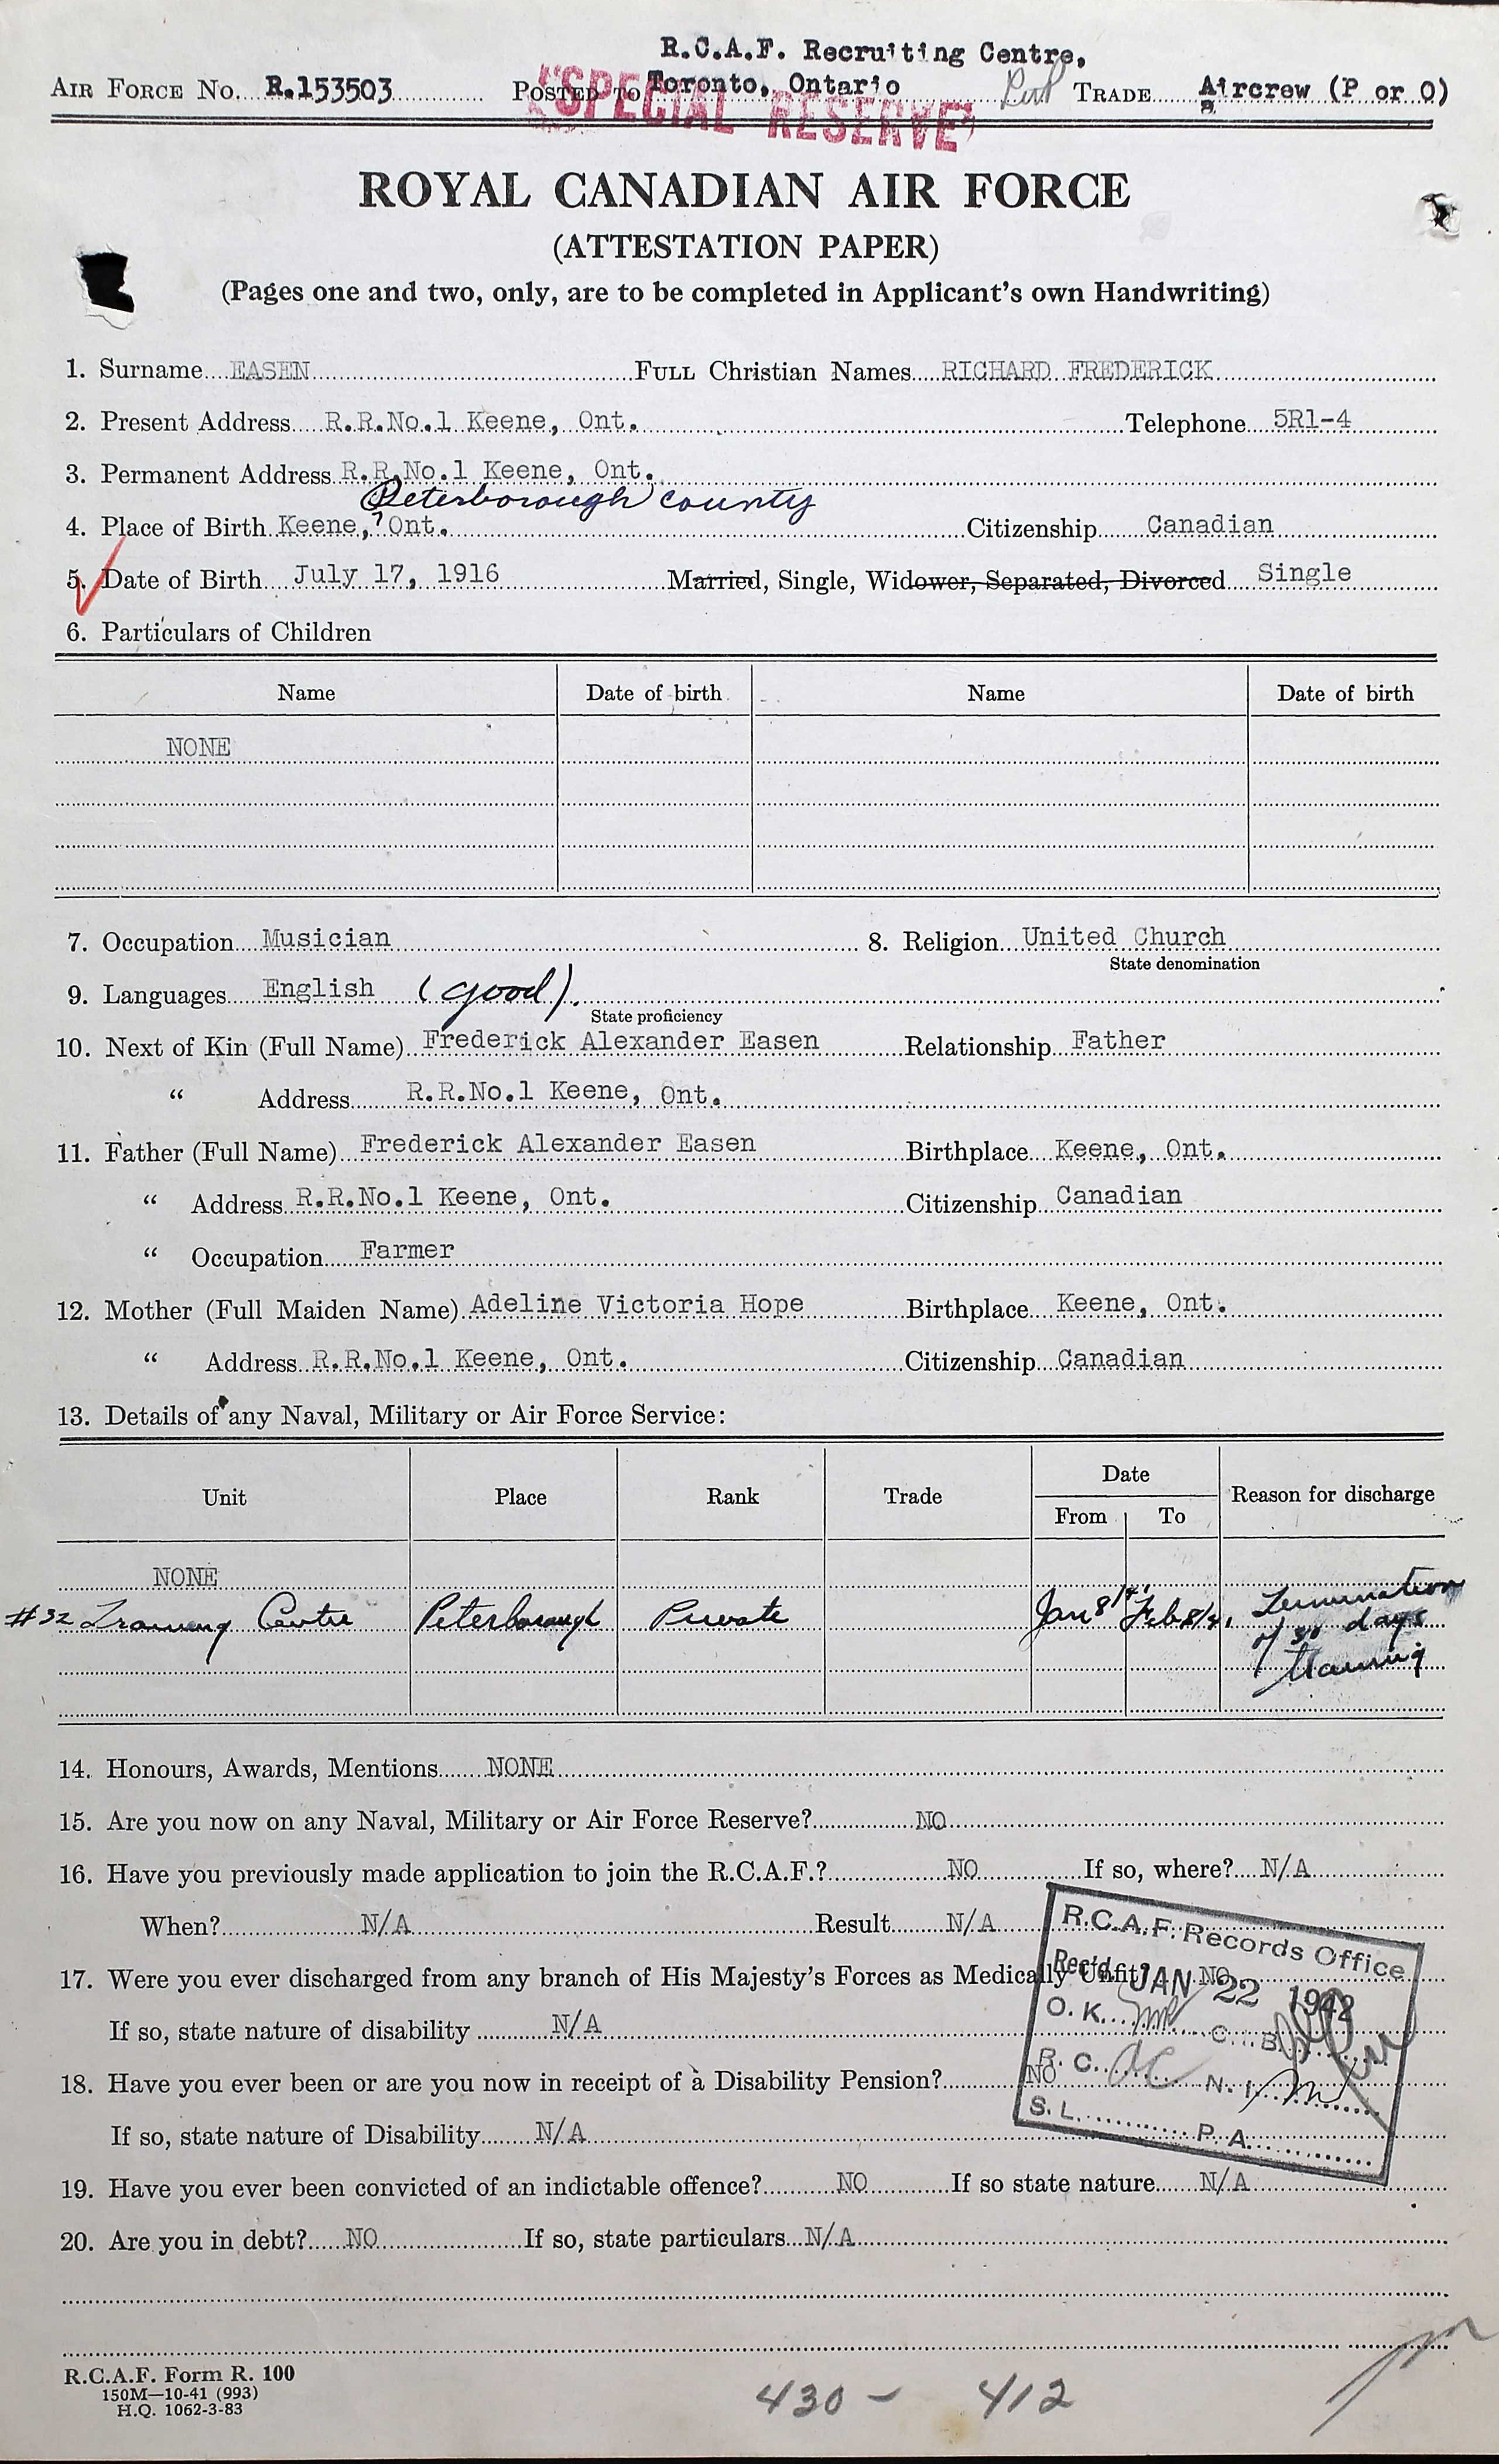 R.C.A.F. Recruiting Centre,
AIR FORCE NO. R.153503 POSTED TO Toronto, Ontario TRADE Aircrew (P or O)
"SPECIAL RESERVE"
ROYAL CANADIAN AIR FORCE
(ATTESTATION PAPER)
(Pages one and two, only, are to be completed in Applicant's own Handwriting)
1. Surname EASEN FULL Christian Names RICHARD FREDERICK
2. Present Address R.R.No.1 Keene, Ont. Telephone 5R1-4
3. Permanent Address R.R.No.1 Keene, Ont.
Peterborough county
4. Place of Birth Keene, Ont. Citizenship Canadian
5. Date of Birth July 17, 1916 Married, Single, Widower, Separated, Divorced Single
6. Particulars of Children
Name Date of birth Name Date of birth
NONE
7. Occupation Musician 8. Religion United Church
State denomination
9. Languages English (good).
State proficiency
10. Next of Kin (Full Name) Frederick Alexander Easen Relationship Father
" Address R.R.No.1 Keene, Ont.
11. Father (Full Name) Frederick Alexander Easen Birthplace Keene, Ont.
" Address R.R.No.1 Keene, Ont. Citizenship Canadian
" Occupation Farmer
12. Mother (Full Maiden Name) Adeline Victoria Hope Birthplace Keene, Ont.
" Address R.R.No.1 Keene, Ont. Citizenship Canadian
13. Details of any Naval, Military or Air Force Service:
Unit Place Rank Trade Date Reason for discharge
From To
NONE
#32 Training Centre Peterborough Private Jan 8/41 Feb 8/41 Termination
of 30 days
training
14. Honours, Awards, Mentions NONE
15. Are you now on any Naval, Military or Air Force Reserve? NO
16. Have you previously made application to join the R.C.A.F.? NO If so, where? N/A
When? N/A Result N/A
17. Were you ever discharged from any branch of His Majesty's Forces as Medically Unfit? NO
If so, state nature of disability N/A
18. Have you ever been or are you now in receipt of a Disability Pension? NO
If so, state nature of Disability N/A
R.C.A.F. Records Office
Rec'd. JAN 22 1942
O.K. C.B.
R.C. N.
S.L. P.A.
19. Have you ever been convicted of an indictable offence? NO If so state nature N/A
20. Are you in debt? NO If so, state particulars N/A
R.C.A.F. Form R. 100
150M—10-41 (993)
H.Q. 1062-3-83
430 - 412